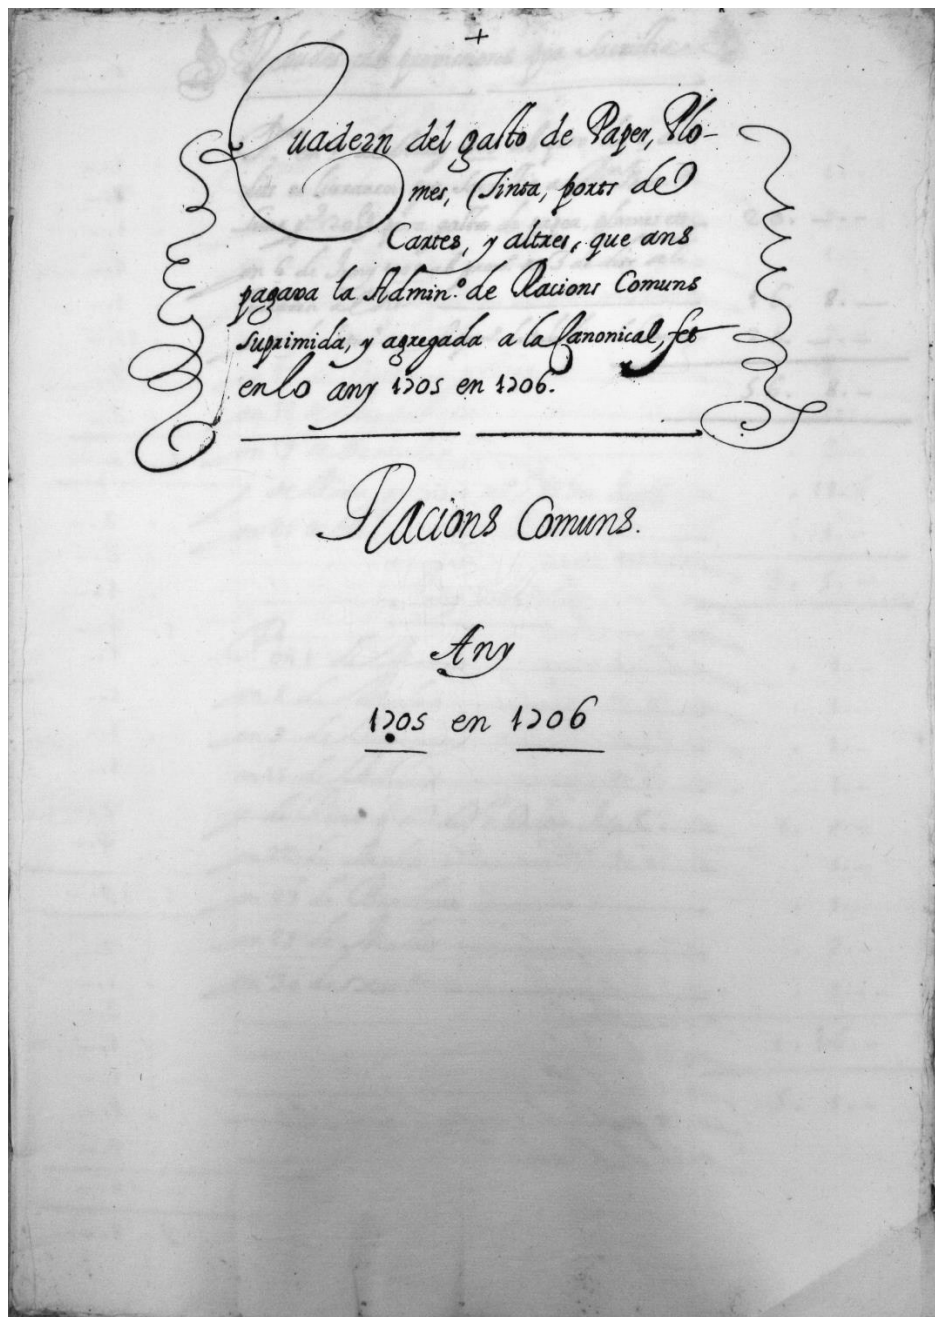 +
Cuadern del gasto de Paper, Plo-
mes, Tinta, ports de
Cartes, y altres, que ans
pagava la Admin.º de Racions Comuns
suprimida, y agregada a la Canonical, fet
en lo any 1705 en 1706.
Racions Comuns.
Any
1705 en 1706